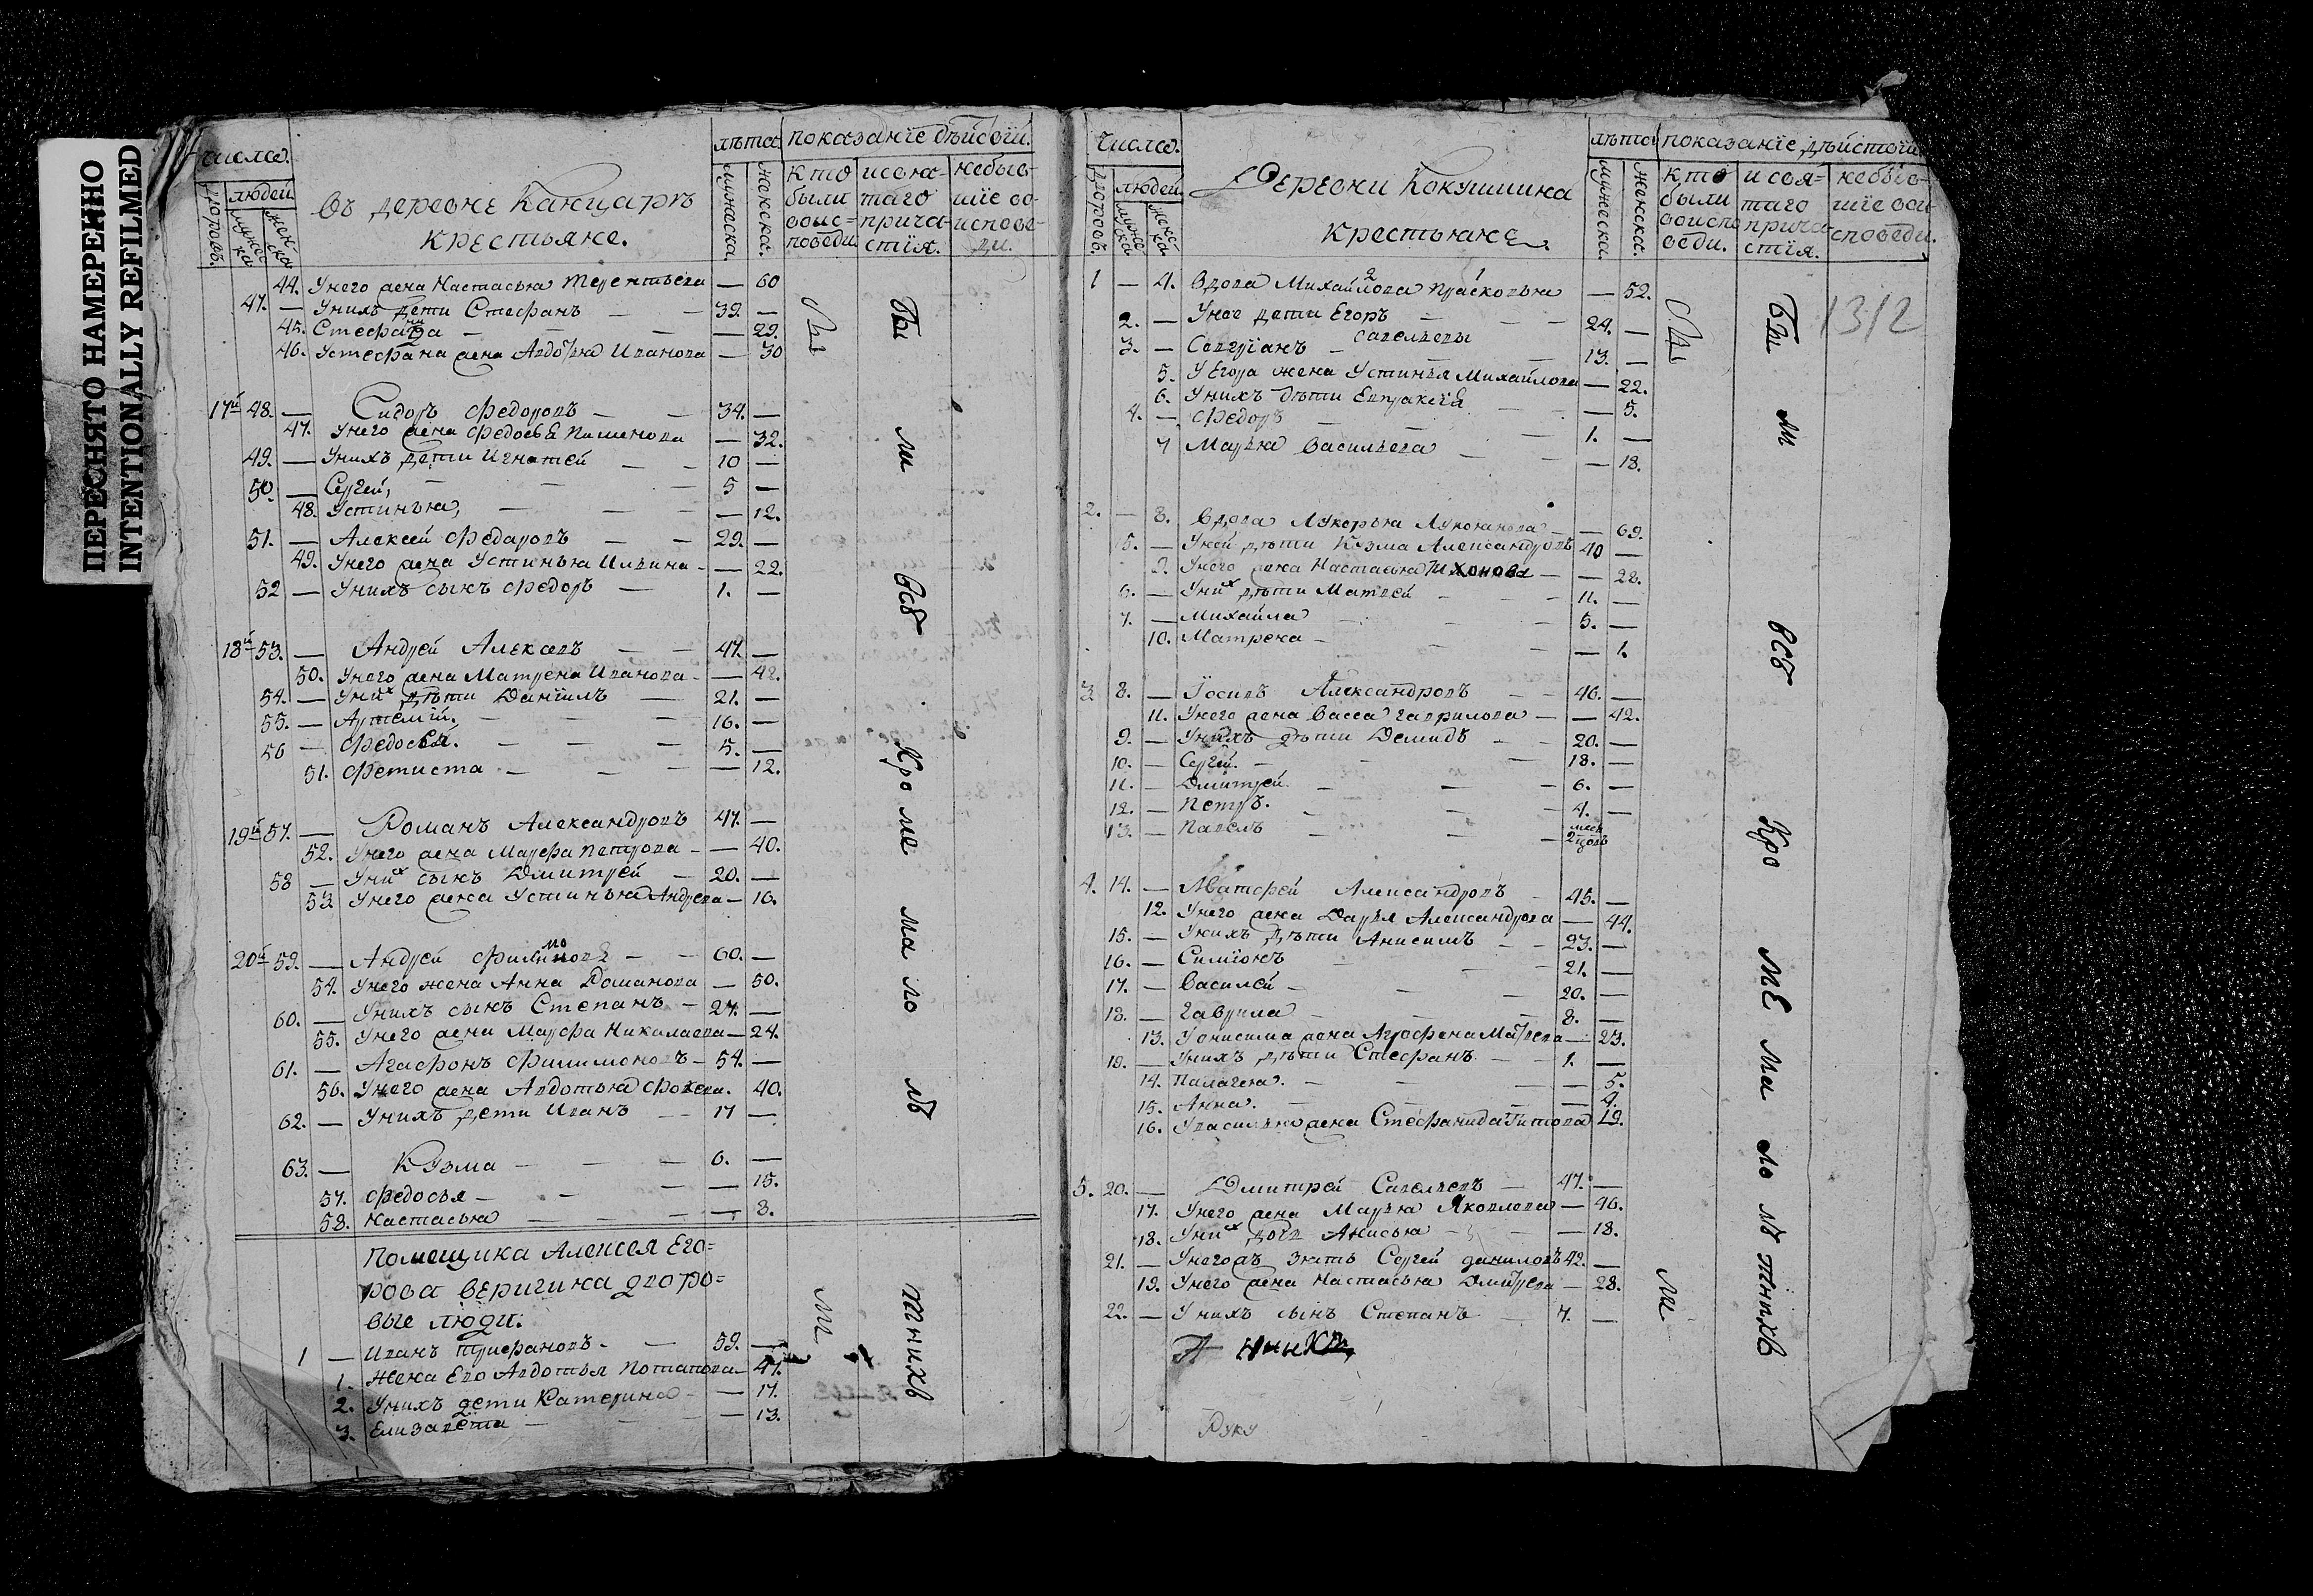 ПЕРЕСНЯТО НАМЕРЕННО
INTENTIONALLY REFILMED
числа. лѣта показанїе дѣйстви.
людей
дворовъ. мужеска женска
Въ деревнѣ Канцаръ
крестьяне.
мужеска. женска.
кто были воис=поведи. и свя-таго прича-стїя. небыв-шїе во исповѣ-ди.
44. Унего жена Настасья Терентьева — 60
47. — Унихъ дети Стефанъ — — 32. —
45. Стефанида — — — 29.
46. Устефана жена Авдотья Иванова — 30
17й 48. — Сидоръ Федоровъ — — 34. —
47. Унего жена Федосья Пименова — 32.
49. — Унихъ дети Игнатей — — 10 —
50. — Сергей, — — 5 —
48. Устинья, — — — 12.
51. — Алексей Федоровъ — — 29. —
49. Унего жена Устинья Ильина — — 22.
52 — Унихъ сынъ Федоръ — 1. —
18й 53. — Андрей Алексевъ — — 47. —
50. Унего жена Матрена Иванова — — 42.
54. — Уних дѣти Данїилъ — 21. —
55. — Артемїй. — — — 16. —
56 — Федосей. — — — 5. —
51. Фетиста — — — — 12.
19й 57. — Романъ Александровъ 47. —
52. Унего жена Марфа Петрова — — 40.
58 — Уних сынъ Дмитрей — 20. —
53 Унего жена Устинья Андрева — 16.
20й 59. — Андрей Филимоновъ — — 60. —
54. Унего жена Анна Романова — 50.
60. — Унихъ сынъ Степанъ — 27. —
55. Унего жена Марфа Николаева — 24.
61. — Агафонъ Филимоновъ — 54. —
56. Унего жена Авдотья Фокева. 40.
62. — Унихъ дети Иванъ — — 17 —
63. — Кузма — — — 6. —
57. Федосья — — — — 15.
58. Настасья — — — — 8.
Помещика Алексея Его=
рова Веригина дворо=
вые люди.
1 — Иванъ Трифановъ. — 59. —
1. Жена Его Авдотья Потапова — 47.
2. Унихъ дети Катерина — — 17.
3. Елизавета — — — — 13.
Бы ли всѣ Кроме мало лѣ тнихъ
числа. лѣта показанїе дѣйствїи
людей
дворовъ. мужеска женска.
Деревни Кокушкина
крестьянѣ
мужеска. женска.
кто были воиспо веди. и свя=таго прича стїя. небыв-шїе вои споведи.
1312
1 — 4. Вдова Михайлова Прасковья — 52.
2. — Унее дети Егоръ — — 24. —
3. — савельевы — 13. —
5. У Егора жена Устинья Михайлова — 22.
6. Унихъ дѣти Евпраксїя — 5.
4. — Федоръ — — 1. —
7 Марья Васильева — — — 18.
2. — 8. Вдова Лукерья Лукоянова — — 69.
5. — Уней дѣти Кузма Александровъ 40 —
9. Унего жена Настасья Тихонова — — 28.
6. — Уних дѣти Матвей — — 11. —
7. — Михайла — — 5. —
10. Матрена — — — 1.
3 8. — Їосипъ Александровъ — — 46. —
11. Унего жена Васса Гаврилова — — 42.
9. — Унихъ дѣти Демидъ — — 20. —
10. — Сергей. — — — 18. —
11. — Дмитрей — — — 6. —
12. — Петръ. — — 4. —
13. — Павелъ — — 2
4. 14. — Матфей Александровъ — 45. —
12. Унего жена Дарья Александрова — 44.
15. — Унихъ дѣти Анисимъ — — 23. —
16. — Симїонъ — — 21. —
17. — Василей — — — 20. —
18. — Гаврила — — — 8. —
13. Уонисима жена Агрофена Матвева — 23.
19. — Унихъ дѣти Стефанъ — — 1. —
14. Палагея. — — — — 5.
15. Анна. — — — — 4.
16. Увасилья жена Стефанида Титова 19.
5. 20. — Дмитрей Савельевъ — 47. —
17. Унего жена Марья Яковлева — 46.
18. Уних дочь Анисья — — 18.
21. — Унегожъ зять Сергей Даниловъ 42. —
19. Унего жена Настасья Дмитрева — 28.
22. — Унихъ сынъ Степанъ — 7. —
Руку
Бы ли всѣ Кро мѣ ма ло лѣ тнихъ